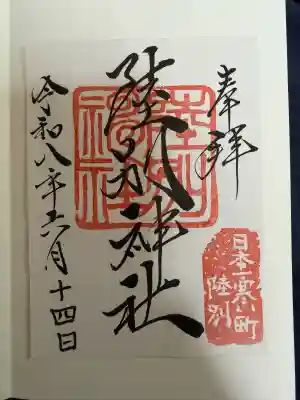 奉拝
陸別神社
日本一寒い町
陸別
令和八年六月十四日